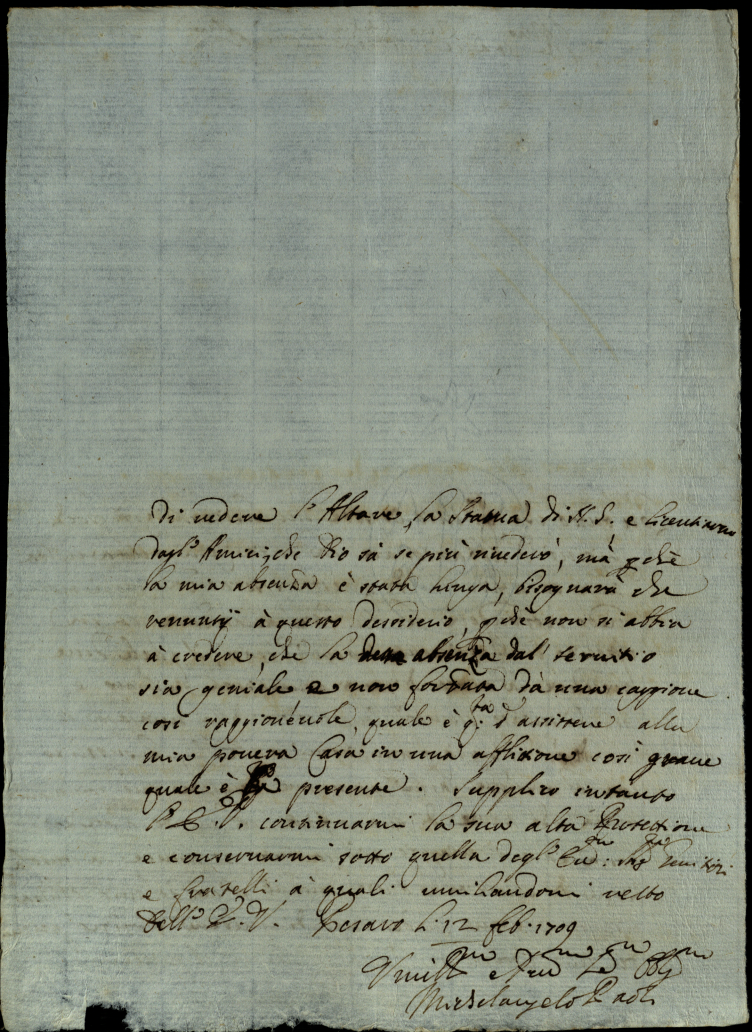 di vedere l'Altare, la Statua di N. S. e licentiarmi
dagl'Amici, che Dio sà se più rivederò, mà pche
la mia absenza è stata lunga, bisognarà che
renuntij à questo desiderio, pche non si abbia
à credere, che la absenza dal' servitio
sia geniale e non forzata dà una caggione
così raggionévole, quale è q:ta d'assistere alla
mia povera Casa in una afflitione così grave
quale è la presente. Supplico intanto
l'E. V. continuarmi la sua alta Protettione
e conservarmi sotto quella degl' Genitori
e fratelli à quali umiliandomi resto
Dell'E. V. Pesaro li 12 feb. 1709
Umilmo e Devmo Se Obligmo
Michelangelo Paoli